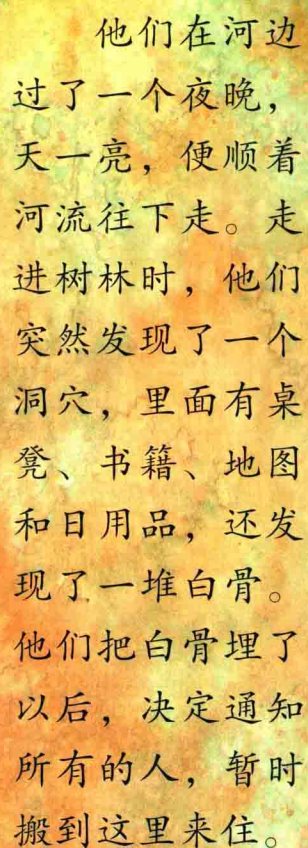 他们在河边
过了一个夜晚，
天一亮，便顺着
河流往下走。走
进树林时，他们
突然发现了一个
洞穴，里面有桌
凳、书籍、地图
和日用品，还发
现了一堆白骨。
他们把白骨埋了
以后，决定通知
所有的人，暂时
搬到这里来住。